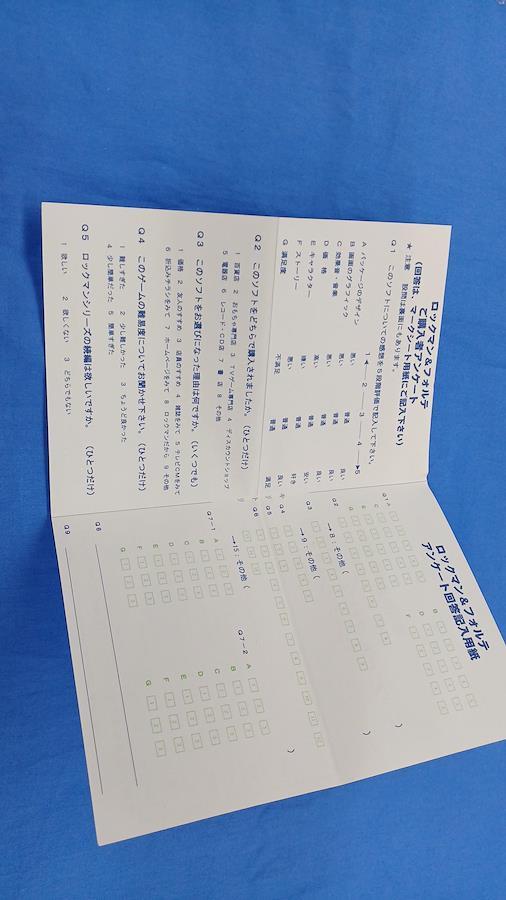 ロックマン&フォルテ
ご購入者アンケート
(回答は、マークシート用紙にご記入下さい)
★ 注意 設問は裏面にもあります。
Q1 このソフトについての感想を5段階評価で記入して下さい。
1 ◀ 2 3 4 ▶5
A パッケージのデザイン 悪い 普通 良い
B 画面のグラフィック 悪い 普通 良い
C 効果音・音楽 悪い 普通 良い
D 価 格 高い 普通 安い
E キャラクター 嫌い 普通 好き
F ストーリー 悪い 普通 良い
G 満足度 不満足 普通 満足
Q2 このソフトをどちらで購入されましたか。(ひとつだけ)
1 百貨店 2 おもちゃ専門店 3 TVゲーム専門店 4 ディスカウントショップ
5 電器店 6 レコード・CD店 7 書 店 8 その他
Q3 このソフトをお選びになった理由は何ですか。(いくつでも)
1 価格 2 友人のすすめ 3 店員のすすめ 4 雑誌をみて 5 テレビCMをみて
6 折込みチラシをみて 7 ホームページをみて 8 ロックマンだから 9 その他
Q4 このゲームの難易度についてお聞かせ下さい。(ひとつだけ)
1 難しすぎた 2 少し難しかった 3 ちょうど良かった
4 少し簡単だった 5 簡単すぎた
Q5 ロックマンシリーズの続編は欲しいですか。(ひとつだけ)
1 欲しい 2 欲しくない 3 どちらでもない
ロックマン&フォルテ
アンケート回答記入用紙
Q1 A
B
C
D
E
F
G
Q2
→8:その他 ( )
Q3
→9:その他 ( )
Q4
Q5
Q6
→15:その他 ( )
Q7-1 A
B
C
D
E
F
G
Q7-2 A
B
C
D
E
F
G
Q8
Q9